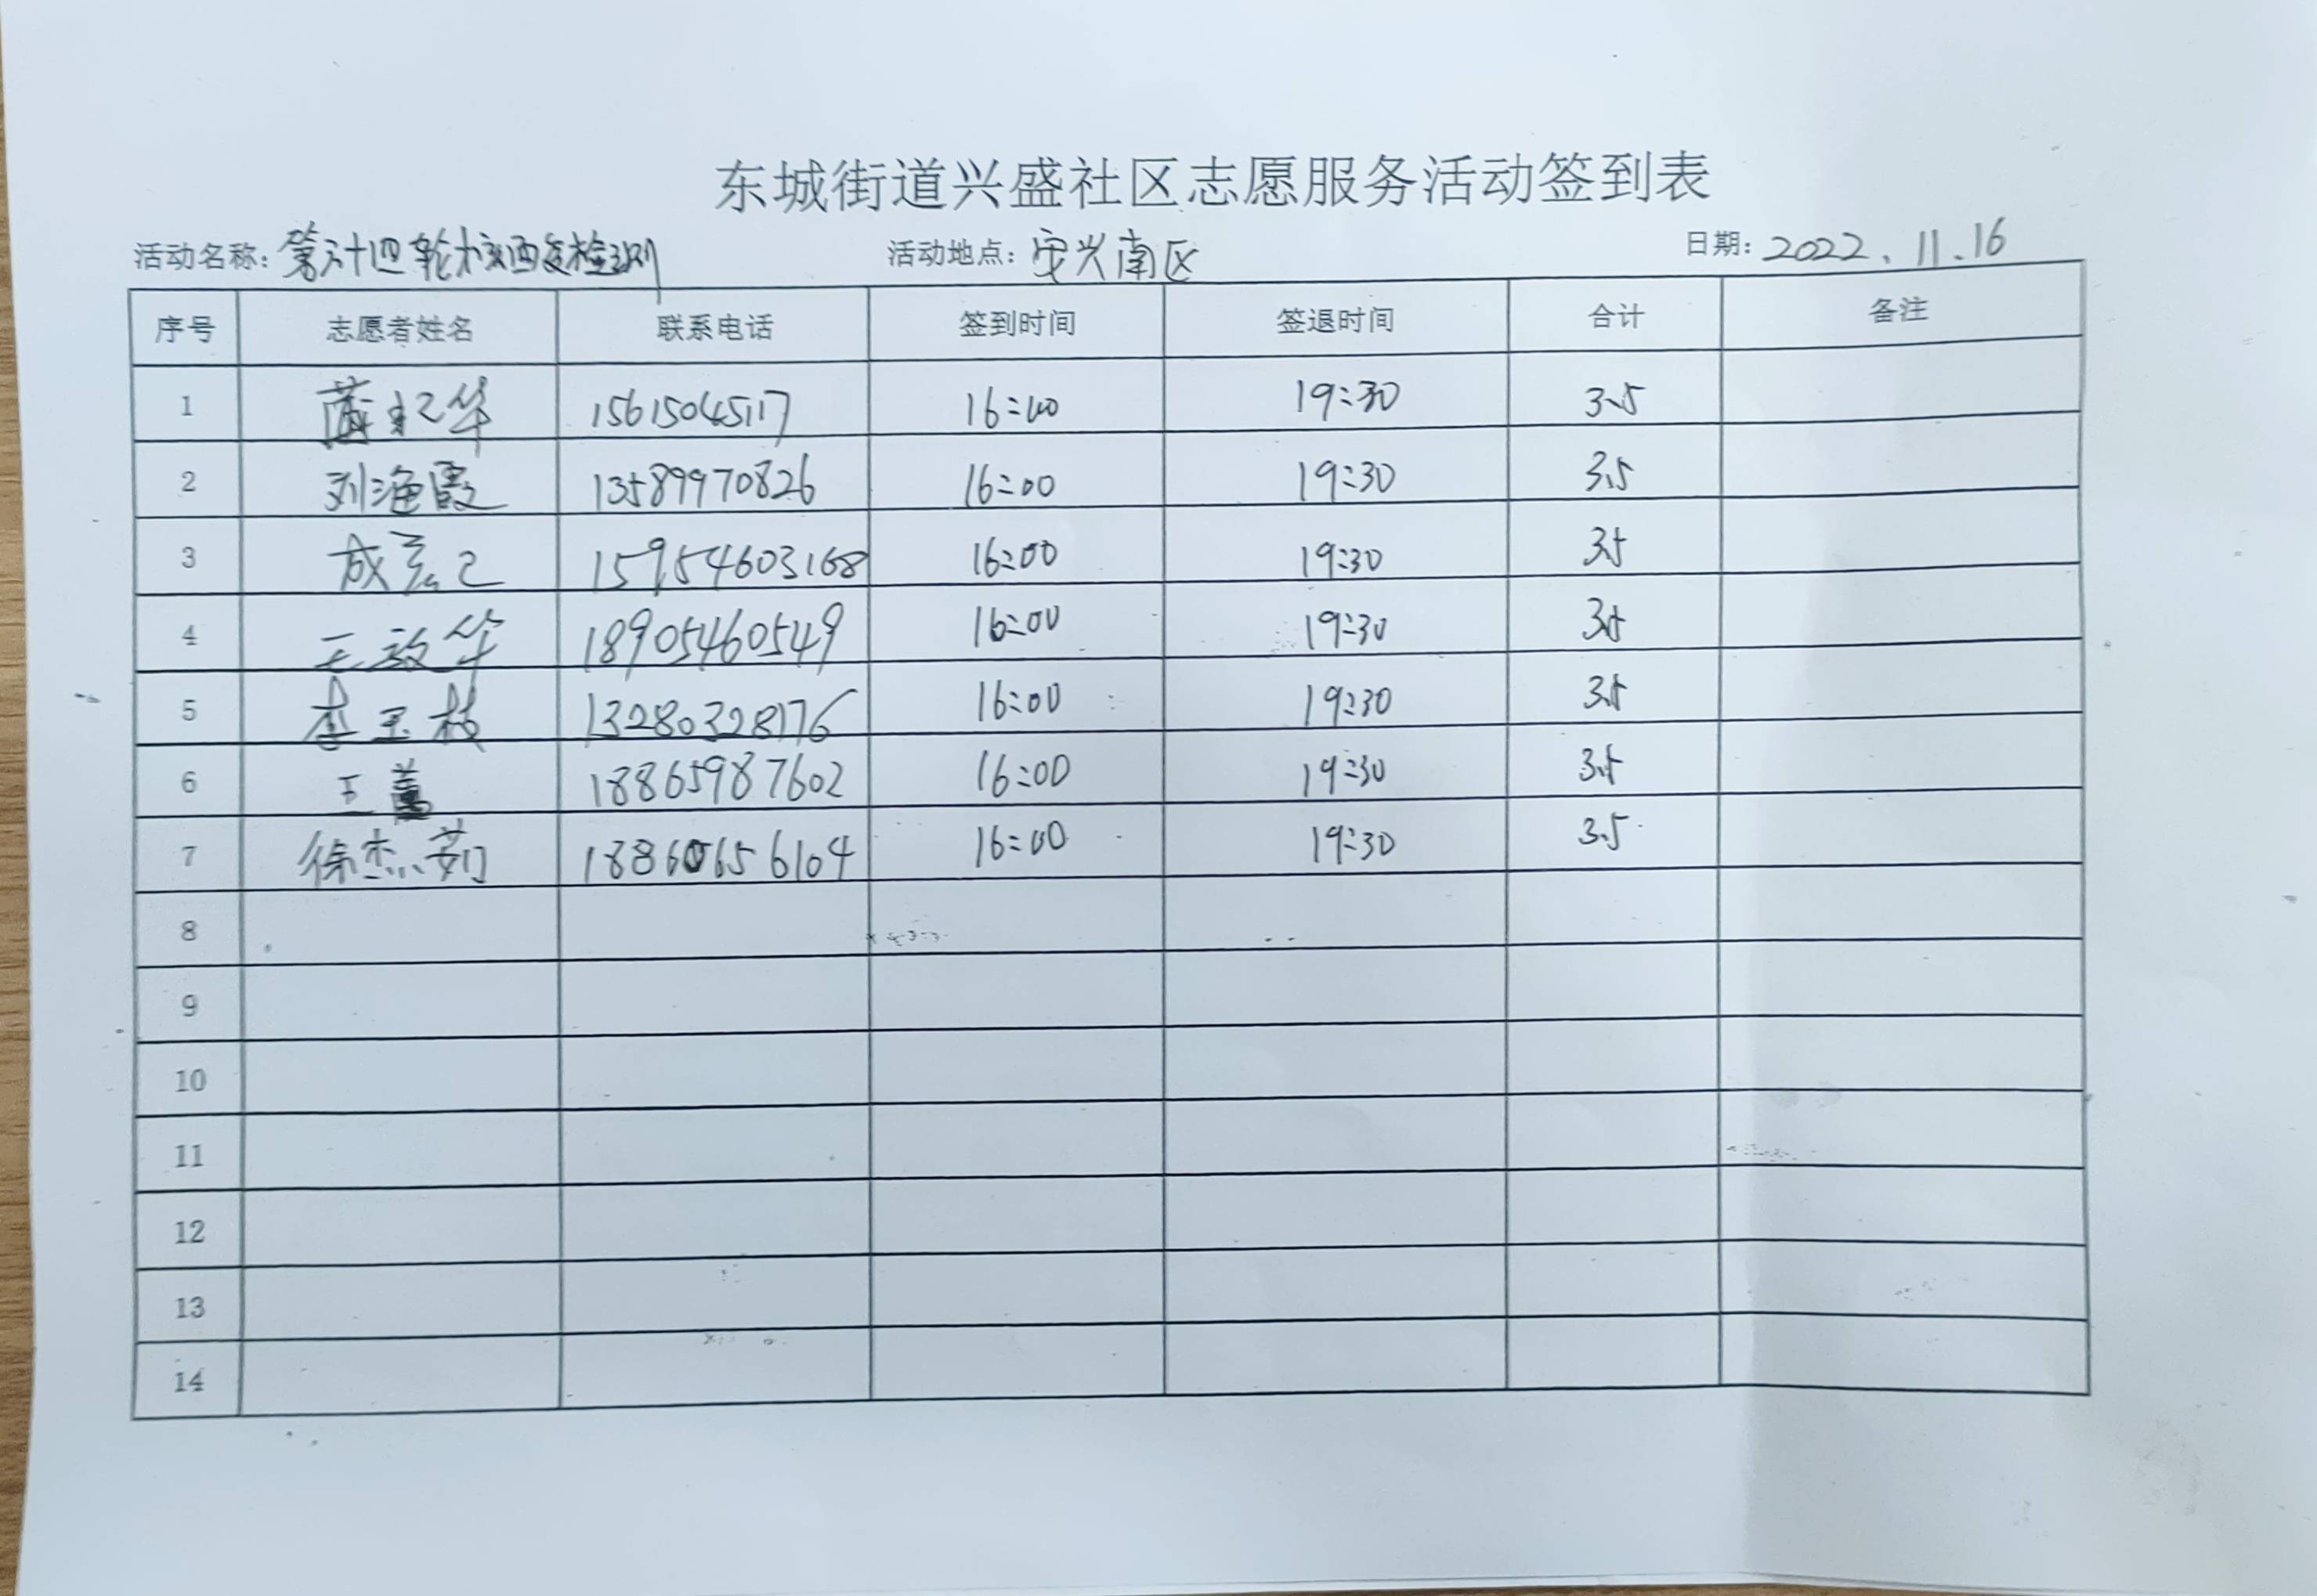 东城街道兴盛社区志愿服务活动签到表
活动名称：第六十四轮核酸检测 活动地点：安兴南区 日期：2022.11.16
序号 志愿者姓名 联系电话 签到时间 签退时间 合计 备注
1 华 15615045117 16:00 19:30 3.5
2 刘渔霞 13589970826 16:00 19:30 3.5
3 成 15954603168 16:00 19:30 3.5
4 王效华 18905460549 16:00 19:30 3.5
5 李玉枝 13280328176 16:00 19:30 3.5
6 王 18865987602 16:00 19:30 3.5
7 徐杰茹 18860656104 16:00 19:30 3.5
8
9
10
11
12
13
14